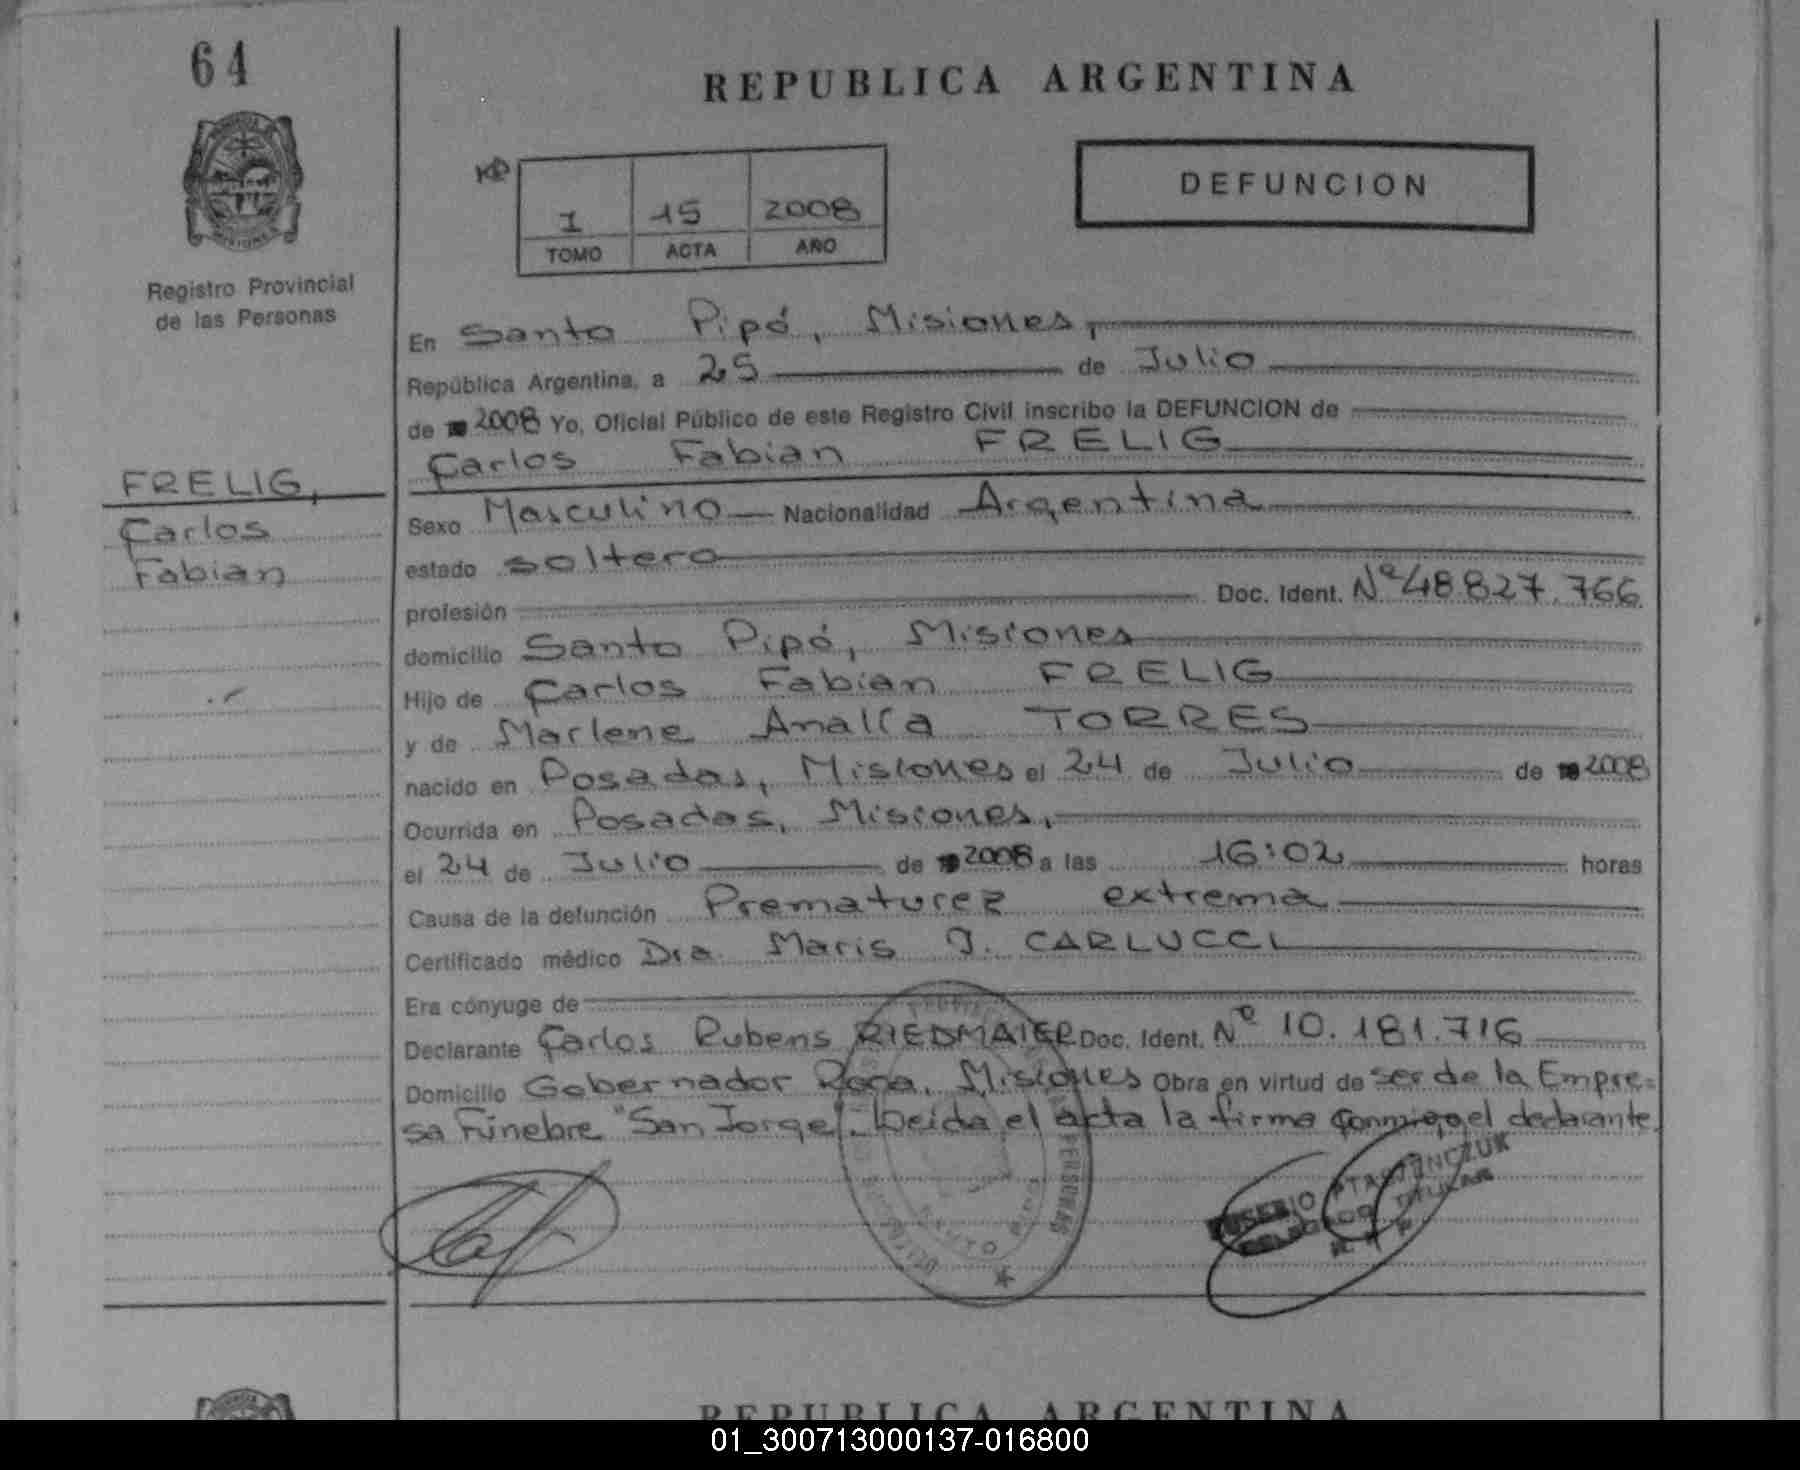 64
REPUBLICA ARGENTINA
DEFUNCION
1 15 2008
TOMO ACTA AÑO
Registro Provincial
de las Personas
FRELIG,
Carlos
Fabian
En Santo Pipó, Misiones,
República Argentina, a 25 de Julio
de 2008 Yo, Oficial Público de este Registro Civil inscribo la DEFUNCION de
Carlos Fabian FRELIG
Sexo Masculino Nacionalidad Argentina
estado soltero
profesión Doc. Ident. Nº 48.827.766
domicilio Santo Pipó, Misiones
Hijo de Carlos Fabian FRELIG
y de Marlene Analía TORRES
nacido en Posadas, Misiones el 24 de Julio de 2008
Ocurrida en Posadas, Misiones,
el 24 de Julio de 2008 a las 16:02 horas
Causa de la defunción Prematurez extrema
Certificado médico Dra. Maris J. CARLUCCI
Era cónyuge de
Declarante Carlos Rubens RIEDMAIER Doc. Ident. Nº 10.181.716
Domicilio Gobernador Roca, Misiones Obra en virtud de ser de la Empre=
sa Fúnebre "San Jorge".- Leida el acta la firma conmigo el declarante.
PERSONAS
EUSEBIO
TITULAR
REPUBLICA ARGENTINA
01_300713000137-016800